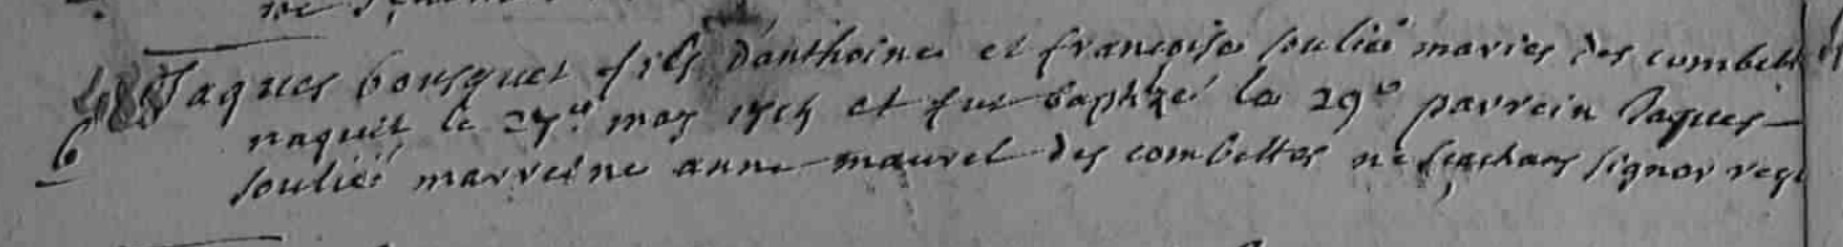 Jaques bousquet fils d'anthoine et françoise soulié maries des combett
6 naquit le 27e may 1715 et fut baptizé le 29e parrein Jaques
soulié marreine anne maurel des combettes ne sçachans signer reqt